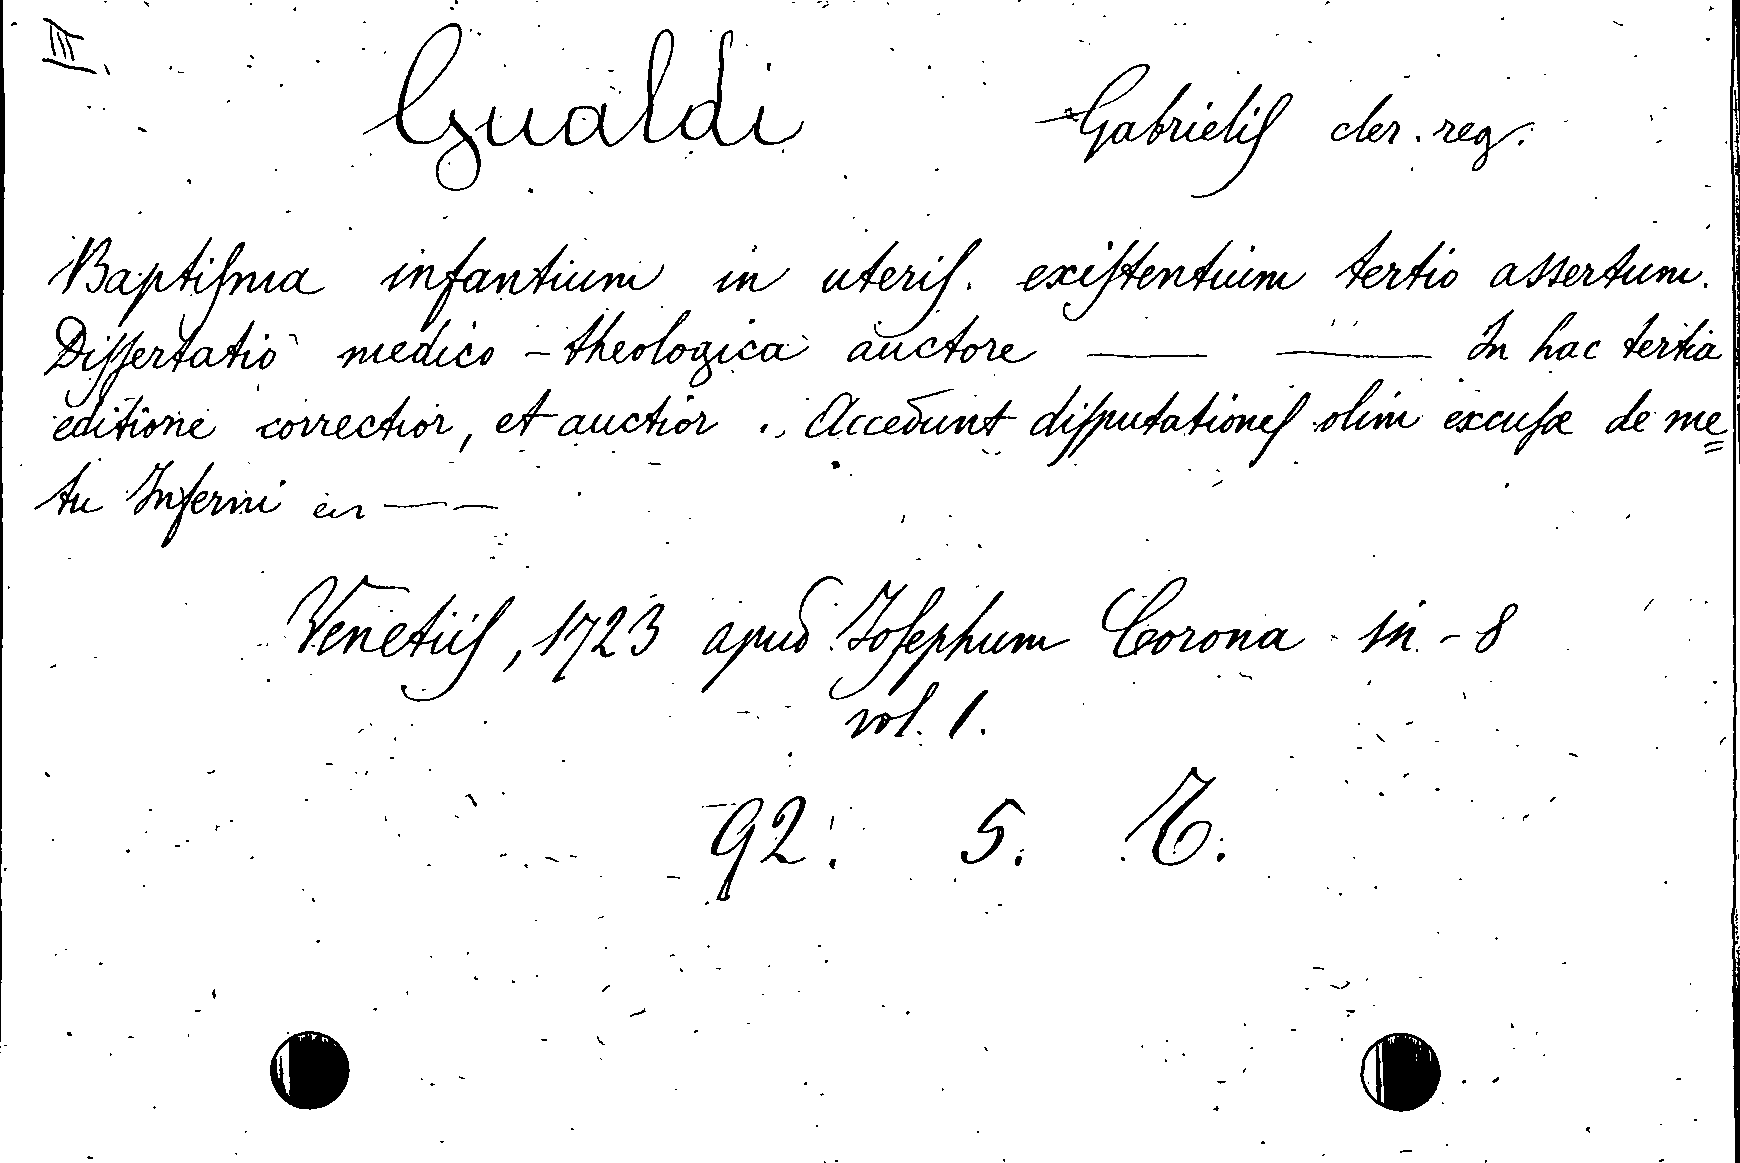 III.
Gualdi Gabrielis cler. reg.
Baptisma infantium in uteris. existentium tertio assertum.
Dissertatio medico-theologica auctore —— —— In hac tertia
editione correctior, et auctior. Accedunt disputationes olim excusæ de me=
tu Inferni en — —
Venetiis, 1723 apud Iosephum Corona in-8
vol. 1.
92. 5. T.